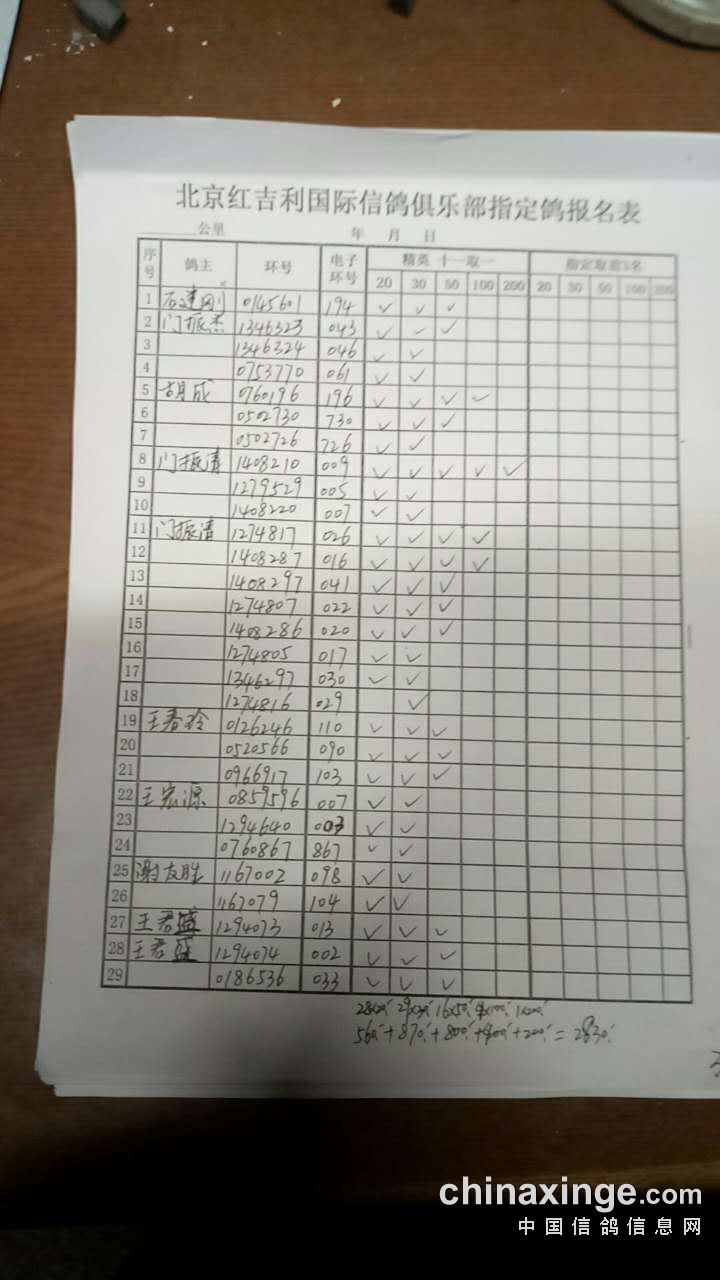 北京红吉利国际信鸽俱乐部指定鸽报名表
公里 年 月 日
序号 鸽主 环号 电子环号 精英 十一取一 指定取前5名
20 30 50 100 200 20 30 50 100 200
1 石建刚 0145601 194 ✓ ✓ ✓
2 门振杰 1346323 043 ✓ ✓ ✓
3 1346324 046 ✓ ✓
4 0753770 061 ✓ ✓
5 胡成 0760196 196 ✓ ✓ ✓ ✓
6 0502730 730 ✓ ✓ ✓
7 0502726 726 ✓ ✓
8 门振清 1408210 009 ✓ ✓ ✓ ✓ ✓
9 1279529 005 ✓ ✓
10 1408220 007 ✓ ✓
11 门振清 1274817 026 ✓ ✓ ✓ ✓
12 1408287 016 ✓ ✓ ✓ ✓
13 1408297 041 ✓ ✓ ✓
14 1274807 022 ✓ ✓ ✓
15 1408286 020 ✓ ✓ ✓
16 1274805 017 ✓ ✓
17 1346297 030 ✓ ✓
18 1274816 029 ✓
19 王春玲 0126246 110 ✓ ✓ ✓
20 0520566 090 ✓ ✓ ✓
21 0966917 103 ✓ ✓ ✓
22 王宏源 0859596 007 ✓ ✓
23 1294640 003 ✓ ✓
24 0760867 867 ✓ ✓
25 谢友胜 1167002 098 ✓ ✓
26 1167079 104 ✓ ✓
27 王君盛 1294073 013 ✓ ✓ ✓
28 王君盛 1294074 002 ✓ ✓ ✓
29 0186536 033 ✓ ✓ ✓
28×20 29×30 16×50 4×100 1×200
560+870+800+400+200=2830
chinaxinge.com
中国信鸽信息网